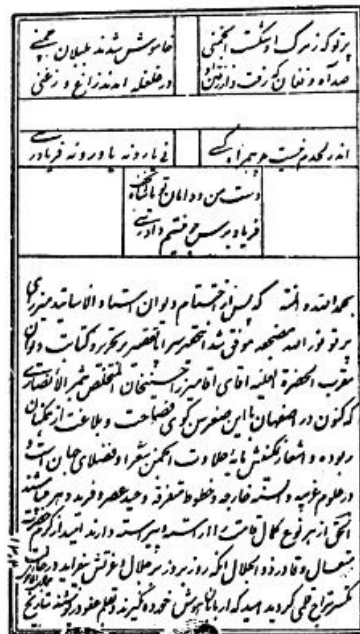 پرتو که ز مرگ او شکست انجمنی
خاموش شدند بلبلان چمنی
صد آه و فغان که رفت و از رفتن او
در غلغله آمدند زاغ و زغنی
اندر لحدم نیست همراه کسی
نی یار و نه یاور و نه فریادرسی
دست من و دامان تو یا شاه نجف
فریاد برس چو نیستم دادرسی
بحمد الله و المنه که پس از اختتام دیوان استاد الاساتید میرزای
پرتو نور الله مضجعه موفق شد این حقیر سراپا تقصیر بتحریر و کتابت دیوان
مقرب الحضرة العلیه اقای اقا میرزا حسینخان المتخلص
که کنون در اصفهان با این صغر سن گوی فصاحت و بلاغت از همگنان
ربوده و اشعار نمکینش مایه حلاوت انجمن شعرا و فضلای جهان است
در علوم عربیه و السنه خارجه و خطوط متفرقه وحید عصر و فرید دهر میباشند
الحق از هر نوع کمال قامت آراسته و پیراسته دارند امید از کرم حضرت
متعال و قادر ذو الجلال آنکه روز بروز بر جلال و عزتش بیفزاید در
گستر اج قلمی گردید امید که ارباب هوش خورده نگیرند و قلم عفو در کشند تاریخ